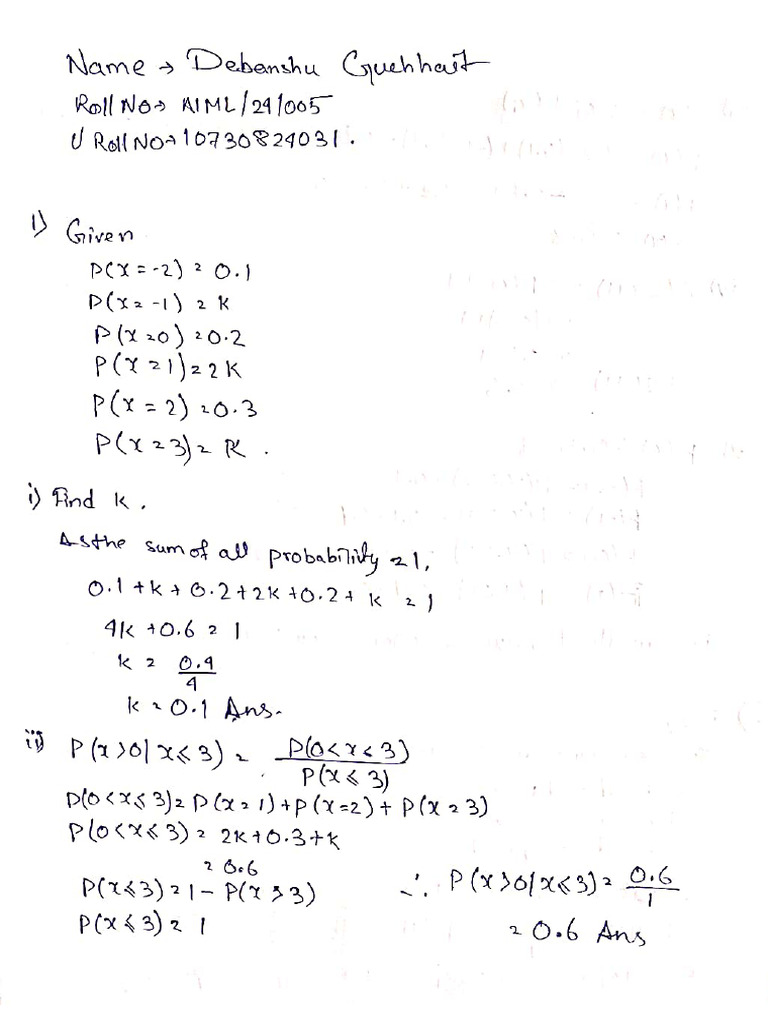 Name → Debanshu Guchhait
Roll No → AIML/24/005
U Roll No → 10730824031.
1) Given
P(x = -2) = 0.1
P(x = -1) = K
P(x = 0) = 0.2
P(x = 1) = 2K
P(x = 2) = 0.3
P(x = 3) = K.
i) Find K.
As the sum of all probability = 1,
0.1 + K + 0.2 + 2K + 0.2 + K = 1
4K + 0.6 = 1
K = 0.4/4
K = 0.1 Ans.
ii) P(x > 0 | x ≤ 3) = P(0 < x ≤ 3)/P(x ≤ 3)
P(0 < x ≤ 3) = P(x = 1) + P(x = 2) + P(x = 3)
P(0 < x ≤ 3) = 2K + 0.3 + K
= 0.6
P(x ≤ 3) = 1 - P(x > 3)
P(x ≤ 3) = 1
∴ P(x > 0 | x ≤ 3) = 0.6/1
= 0.6 Ans